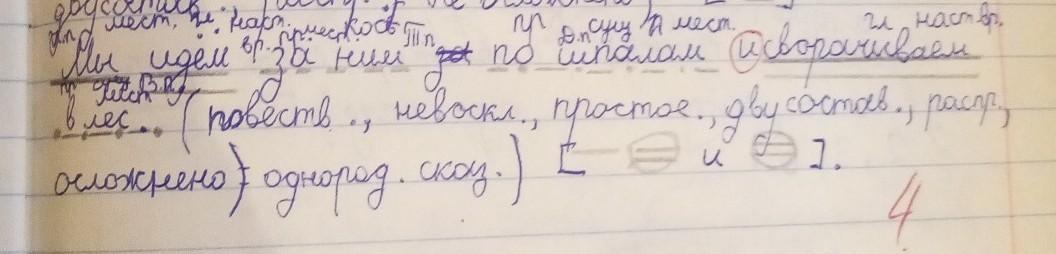 мест. гл. наст. вр. пр мест. косв Т п пр сущ Д.п мест. гл наст вр.
Мы идем за ним по шпалам и сворачиваем
в лес. (повеств., невоскл., простое., двусостав., распр.,
осложнено однород. сказ.) [ и ].
4